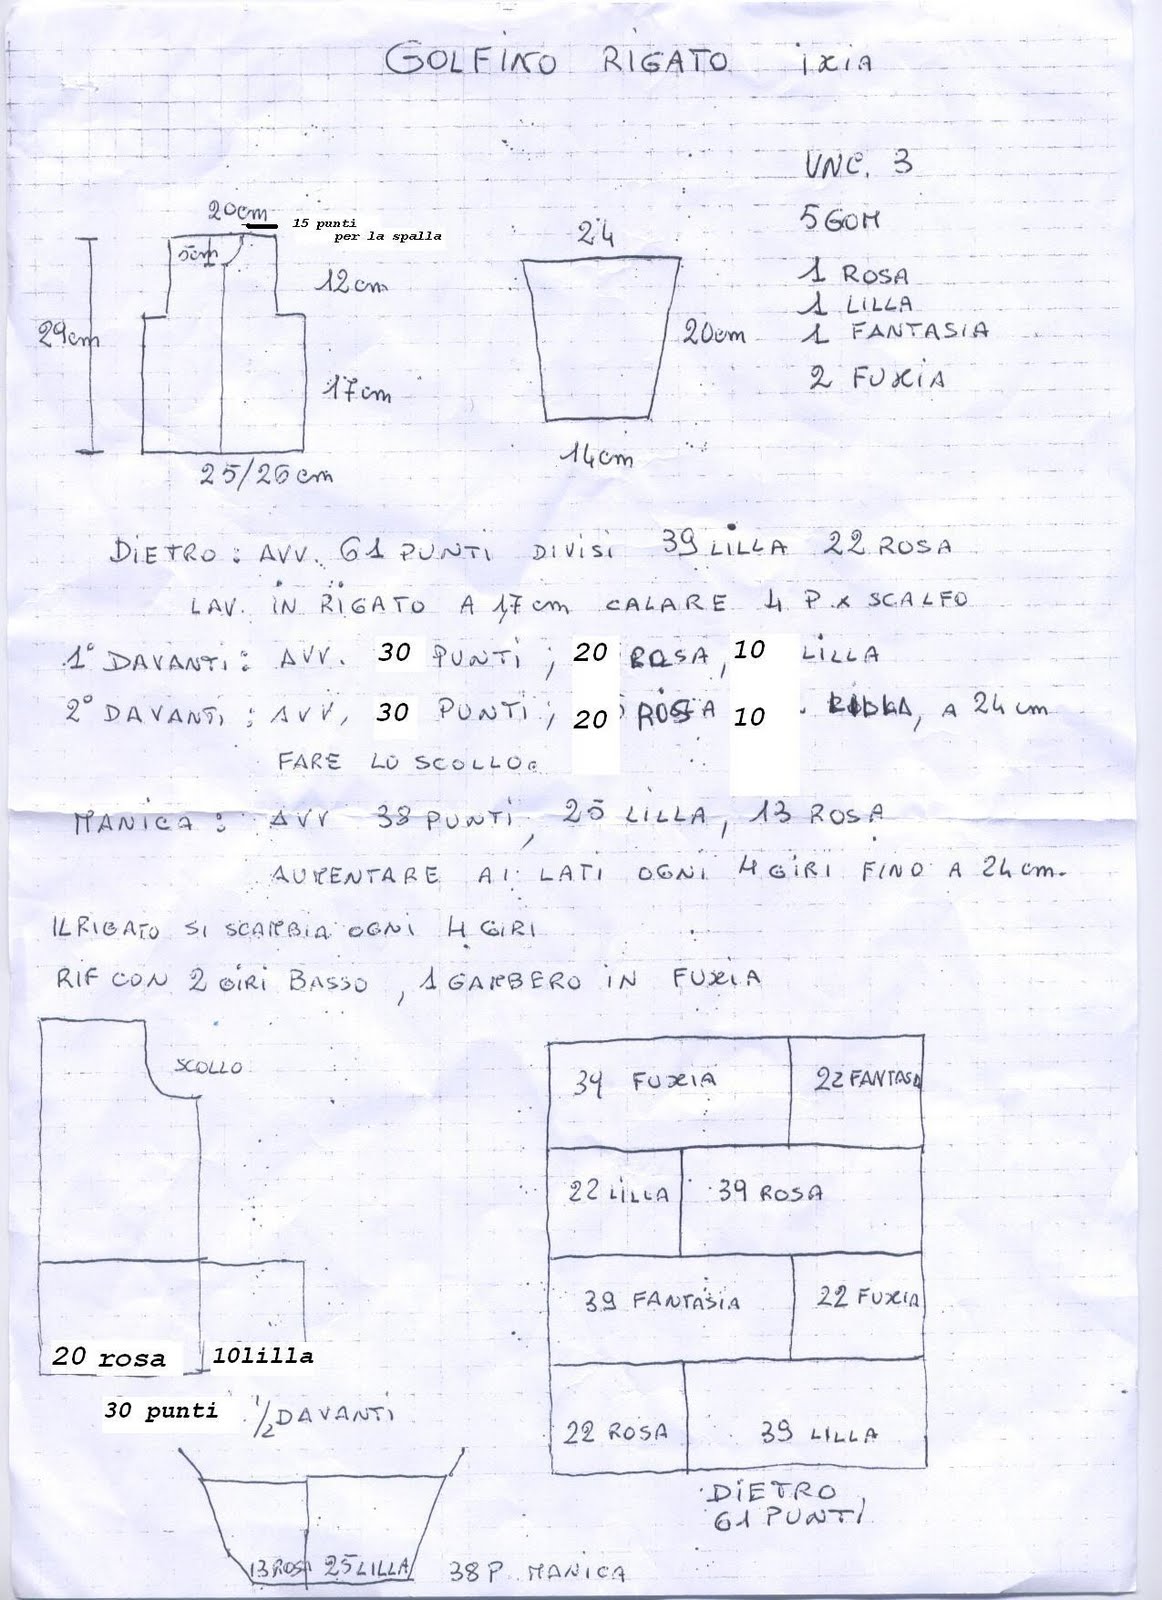 GOLFINO RIGATO ixia
UNC. 3
5 GOM
1 ROSA
1 LILLA
1 FANTASIA
2 FUXIA
20cm
15 punti
per la spalla
5cm
12cm
29cm
17cm
25/26cm
24
20cm
14cm
DIETRO: AVV. 61 PUNTI DIVISI 39 LILLA 22 ROSA
LAV. IN RIGATO A 17cm CALARE 4 P. x SCALFO
1° DAVANTI: AVV. 30 PUNTI; 20 ROSA, 10 LILLA
2° DAVANTI: AVV. 30 PUNTI; 20 ROSA 10 LILLA, A 24cm
FARE LO SCOLLO.
MANICA: AVV 38 PUNTI, 25 LILLA, 13 ROSA
AUMENTARE AI LATI OGNI 4 GIRI FINO A 24cm.
IL RIGATO SI SCAMBIA OGNI 4 GIRI
RIF CON 2 GIRI BASSO, 1 GAMBERO IN FUXIA
SCOLLO
20 rosa 10lilla
30 punti 1/2 DAVANTI
13 ROSA 25 LILLA 38 P. MANICA
39 FUXIA 22 FANTASIA
22 LILLA 39 ROSA
39 FANTASIA 22 FUXIA
22 ROSA 39 LILLA
DIETRO
61 PUNTI